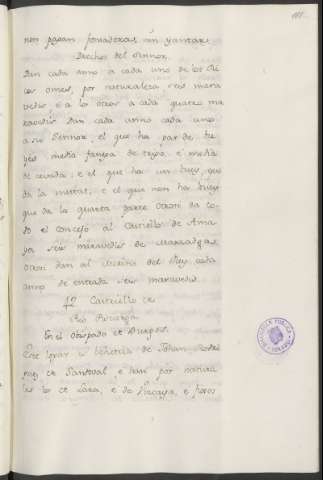 non pagan fonsadera, nin yantar.
Derechos del Sennor.
Dan cada anno a cada uno de los di
ces omes, por naturaleza seis mara
vedis e a los otros a cada quatro ma
ravedis Dan cada anno cada uno
a su Sennor, el que ha par de bu
yes media fanega de trigo, e media
de cevada; e el que ha un buey que
dá la mitat; e el que non ha buey
que da la quarta parte Otrosi da to
do el conceyo al Castiello de Ama
ya seis maravedis de Marzadga.
Otrosi dan al Merino del Rey cada
anno de entrada seis maravedis.
42 Castriello de
Rio Pisuerga
En el Obispado de Burgos.
Este logar es behetria de Johan Rodri
guez de Sandoval, e han por natura
les los de Lara, e de Vizcaya, e peros